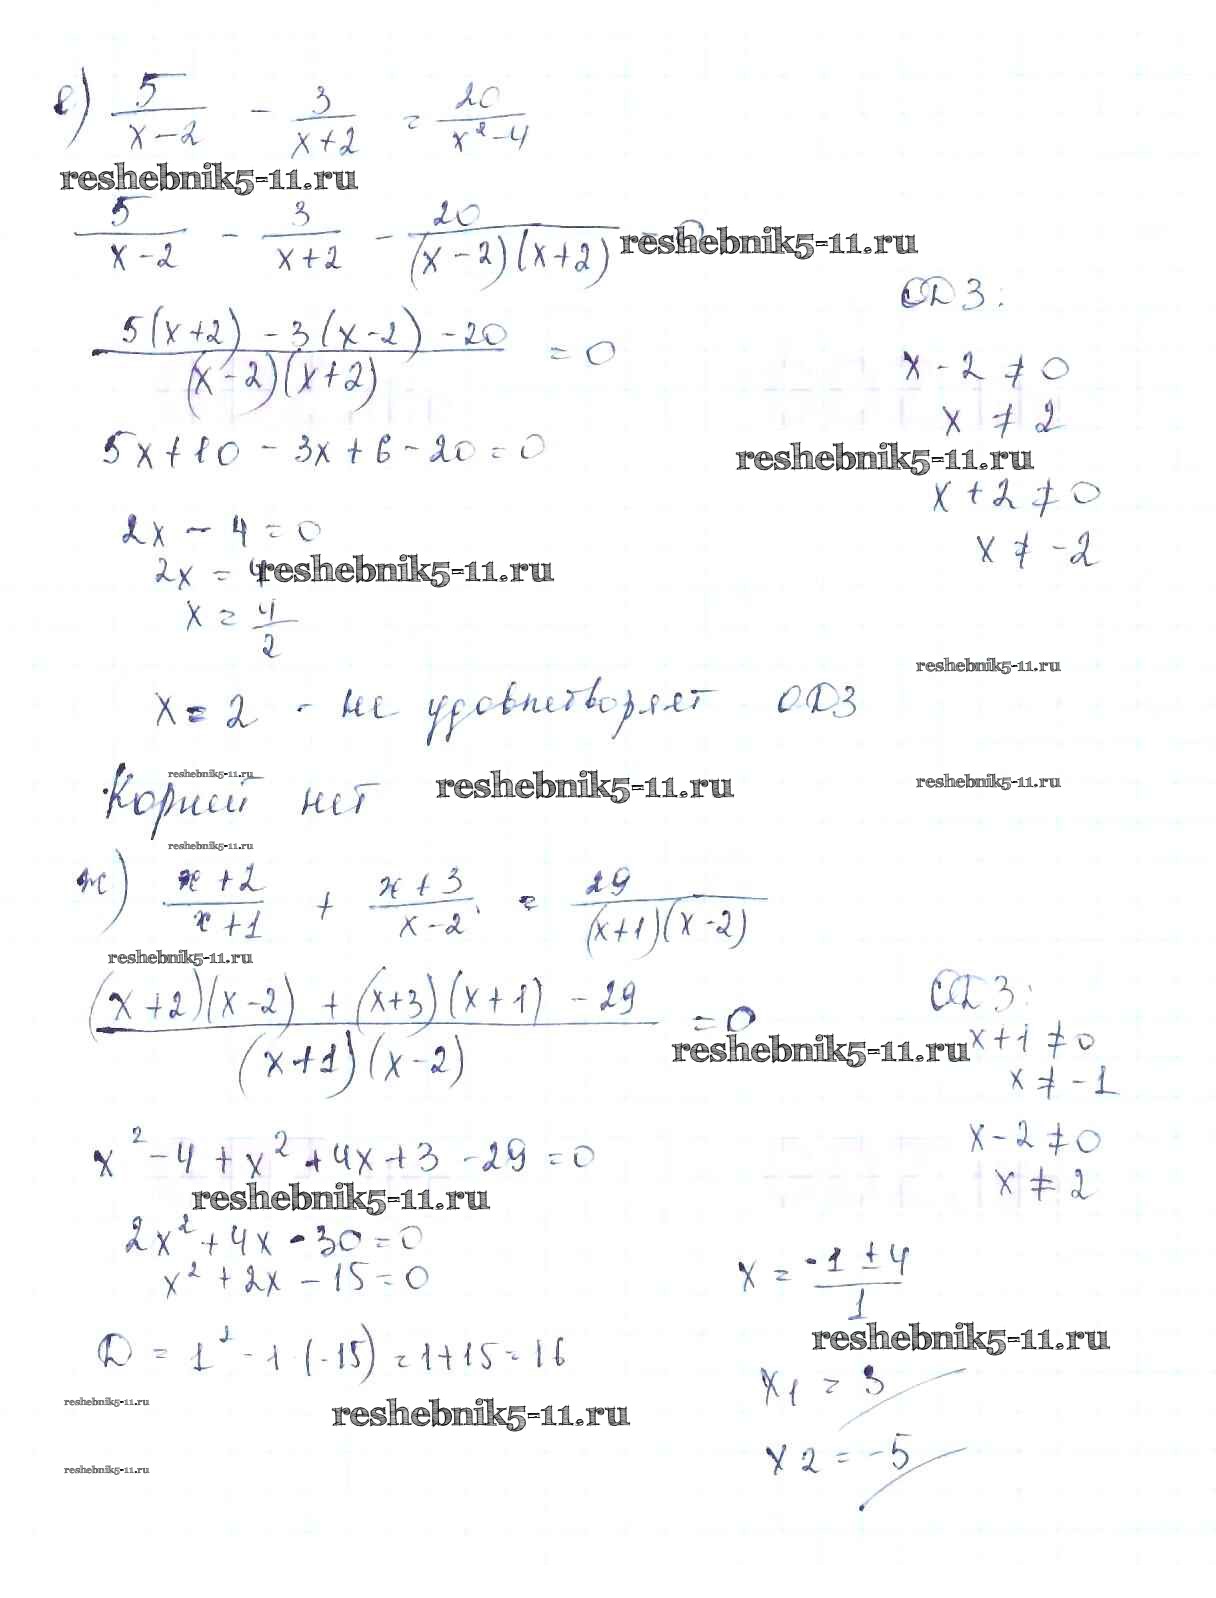 е) 5/(x-2) - 3/(x+2) = 20/(x²-4)
reshebnik5-11.ru
5/(x-2) - 3/(x+2) - 20/((x-2)(x+2))
reshebnik5-11.ru
ОДЗ:
(5(x+2) - 3(x-2) - 20)/((x-2)(x+2)) = 0
x - 2 ≠ 0
x ≠ 2
5x+10 - 3x+6-20=0
reshebnik5-11.ru
x + 2 ≠ 0
2x - 4 = 0
x ≠ -2
2x = 4
reshebnik5-11.ru
x = 4/2
reshebnik5-11.ru
x = 2 - не удовлетворяет ОДЗ
reshebnik5-11.ru
reshebnik5-11.ru
reshebnik5-11.ru
Корней нет
reshebnik5-11.ru
ж) (x+2)/(x+1) + (x+3)/(x-2) = 29/((x+1)(x-2))
reshebnik5-11.ru
((x+2)(x-2) + (x+3)(x+1) - 29)/((x+1)(x-2)) = 0
ОДЗ:
reshebnik5-11.ru
x+1 ≠ 0
x ≠ -1
x-2 ≠ 0
x ≠ 2
x² - 4 + x² + 4x + 3 - 29 = 0
reshebnik5-11.ru
2x² + 4x - 30 = 0
x² + 2x - 15 = 0
x = (-1 ± 4)/1
reshebnik5-11.ru
D = 1² - 1·(-15) = 1+15 = 16
x1 = 3
reshebnik5-11.ru
reshebnik5-11.ru
x2 = -5
reshebnik5-11.ru